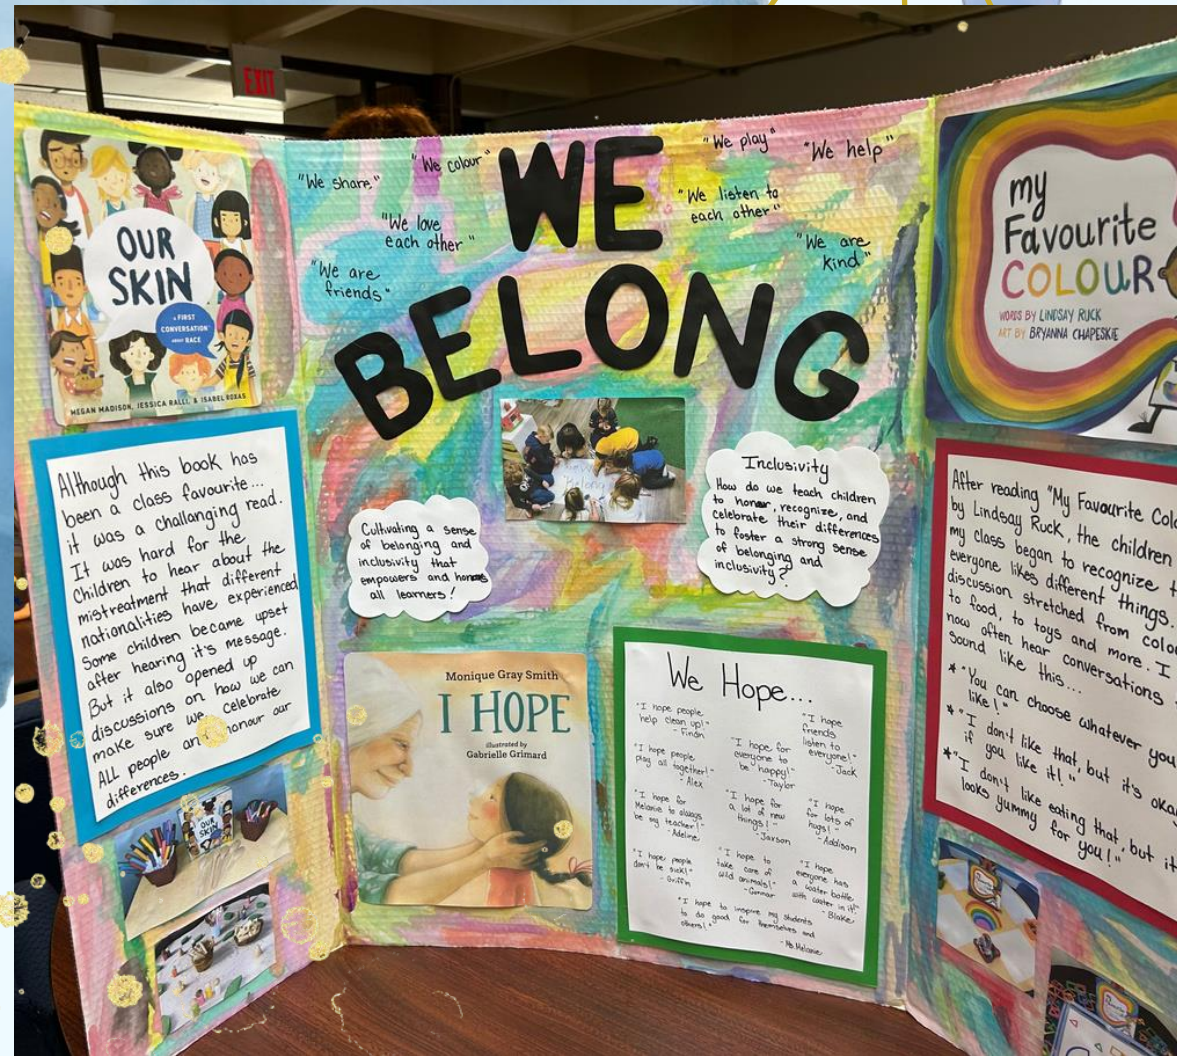 EXIT
OUR
SKIN
A FIRST
CONVERSATION
ABOUT RACE
MEGAN MADISON, JESSICA RALLI, & ISABEL ROXAS
Although this book has
been a class favourite...
it was a challanging read.
It was hard for the
children to hear about the
mistreatment that different
nationalities have experienced
Some children became upset
after hearing it's message.
But it also opened up
discussions on how we can
make sure we celebrate
ALL people and honour our
differences.
OUR
SKIN
"We share"
"We colour"
"We play"
"We help"
"We love
each other"
"We listen to
each other"
"We are
friends"
"We are
kind"
WE
BELONG
Belong
Cultivating a sense
of belonging and
inclusivity that
empowers and honours
all learners!
Inclusivity
How do we teach children
to honour, recognize, and
celebrate their differences
to foster a strong sense
of belonging and
inclusivity?
Monique Gray Smith
I HOPE
illustrated by
Gabrielle Grimard
We Hope...
"I hope people
help clean up!"
- Finán
"I hope
friends
listen to
everyone!"
- Jack
"I hope people
play all together!"
- Alex
"I hope for
everyone to
be happy!"
- Taylor
"I hope for
Melanie to always
be my teacher!"
- Adeline
"I hope for
a lot of new
things!"
- Jaxson
"I hope
for lots of
hugs!"
- Addison
"I hope people
don't be sick!"
- Griffin
"I hope to
take care of
wild animals!"
- Connor
"I hope
everyone has
a water bottle
with water in it!"
- Blake
"I hope to inspire my students
to do good for themselves and
others!"
- Ms. Melanie
my
Favourite
COLOUR
WORDS BY LINDSAY RUCK
ART BY BRYANNA CHAPESKIE
After reading "My Favourite
by Lindsay Ruck, the children
my class began to recognize
everyone likes different things.
discussion stretched from
to food, to toys and more. I
now often hear conversations
sound like this...
* "You can choose whatever you
like!"
* "I don't like that, but it's
if you like it!"
* "I don't like eating that, but
looks yummy for you!"